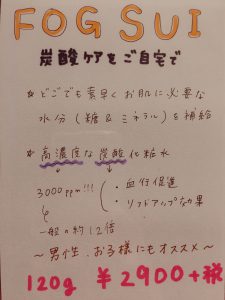 FOG SUI
炭酸ケアをご自宅で
☆ どこでも素早くお肌に必要な
水分(糖&ミネラル)を補給
☆ 高濃度な炭酸化粧水
3000ppm!!!
・血行促進
・リフトアップ効果
一般の約12倍
〜男性・お子様にもオススメ〜
120g ¥2900+税